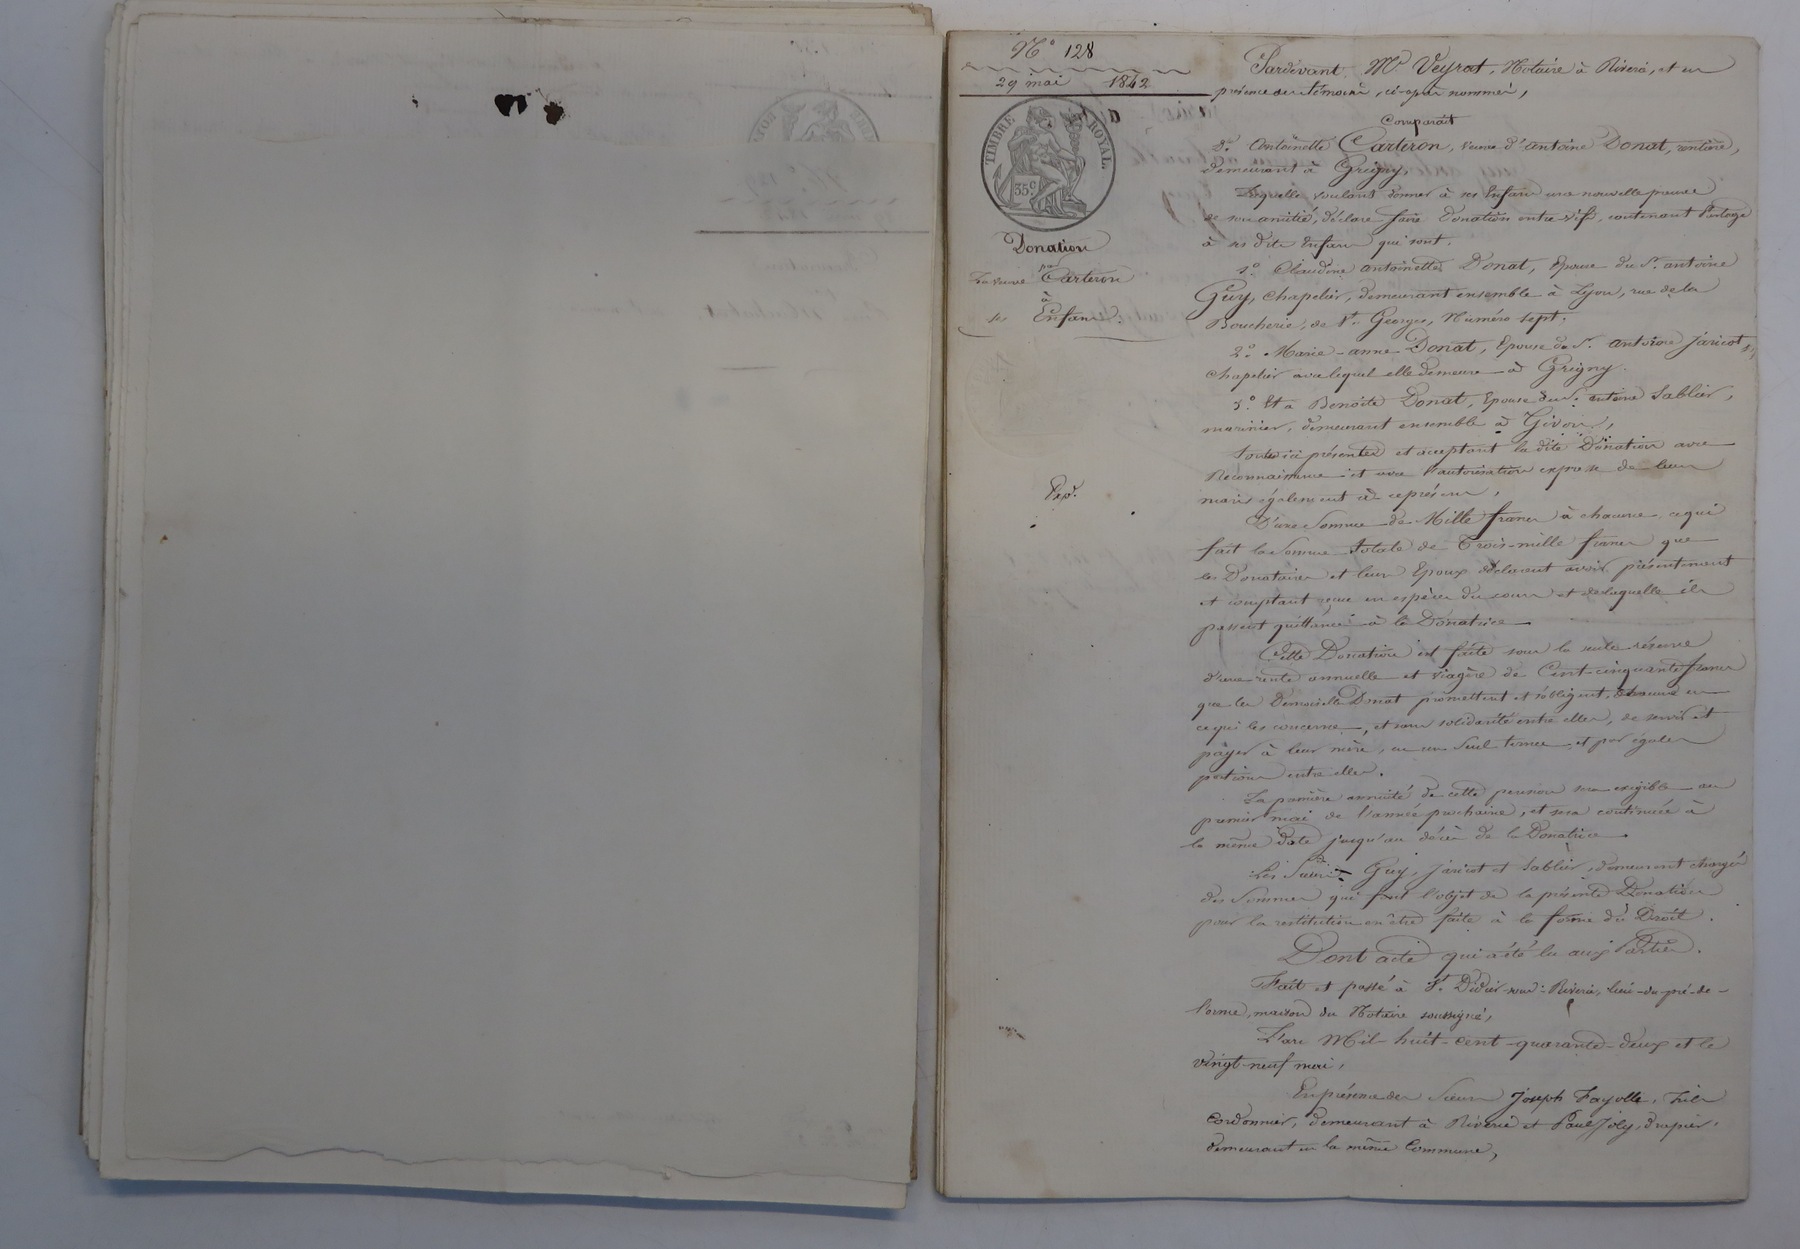 N° 128
29 mai 1842
TIMBRE ROYAL.
35 c.
Donation
par
La veuve Carteron
à
ses Enfans.
Exp.
Pardevant Me Veyrat, Notaire à Riverie, et en
présence des témoins, ci-après nommés,
Comparait
De. Antoinette Carteron, veuve d'antoine Donat, rentière,
demeurant à Grigny,
Laquelle voulant donner à ses Enfans une nouvelle preuve
de son amitié, déclare faire Donation entre-vifs, contenant Partage
à ses dits Enfans qui sont.
1°. Claudine antoinette Donat, Epouse du Sr. antoine
Guy, chapelier, demeurant ensemble à Lyon, rue de la
Boucherie, de St. Georges, Numéro sept.
2°. Marie-anne Donat, Epouse du Sr. antoine Jaricot
chapelier avec lequel elle demeure à Grigny.
3°. Et a Benoîte Donat, Epouse du Sr. antoine Sablier,
marinier, demeurant ensemble à Givors,
toutes ici présentes et acceptant la dite Donation avec
Reconnaissance et avec l'autorisation expresse de leurs
maris également à ce présens,
D'une Somme de Mille francs à chacune, ce qui
fait la Somme totale de Trois-mille francs que
les Donataires et leurs Epoux déclarent avoir présentement
et comptant reçue en espèces du cours et de laquelle ils
passent quittance à la Donatrice
Cette Donation est faite sous la seule réserve
d'une rente annuelle et viagère de Cent-cinquante francs
que les Demoiselles Donat promettent et s'obligent, chacune en
ce qui les concerne, et sans solidarité entre elles, de servir et
payer à leur mère, en un Seul terme et par égales
portions entre elles.
La première annuité de cette pension sera exigible au
premier mai de l'année prochaine, et sera continuée à
la même date jusqu'au décès de la Donatrice.
Les Sieurs Guy, Jaricot et Sablier, demeurent chargés
des Sommes qui font l'objet de la présente Donation
pour la restitution en être faite à la forme du Droit.
Dont acte qui a été lu aux Parties.
Fait et passé à St. Didier-sous-Riverie, lieu-du-pré-de-
l'orme, maison du Notaire soussigné,
L'an Mil-huit-cent-quarante-deux et le
vingt-neuf mai,
En présence des Sieurs Joseph Fayolle, fils
Cordonnier, demeurant à Riverie et Paul Joly, drapier,
demeurant en la même Commune,